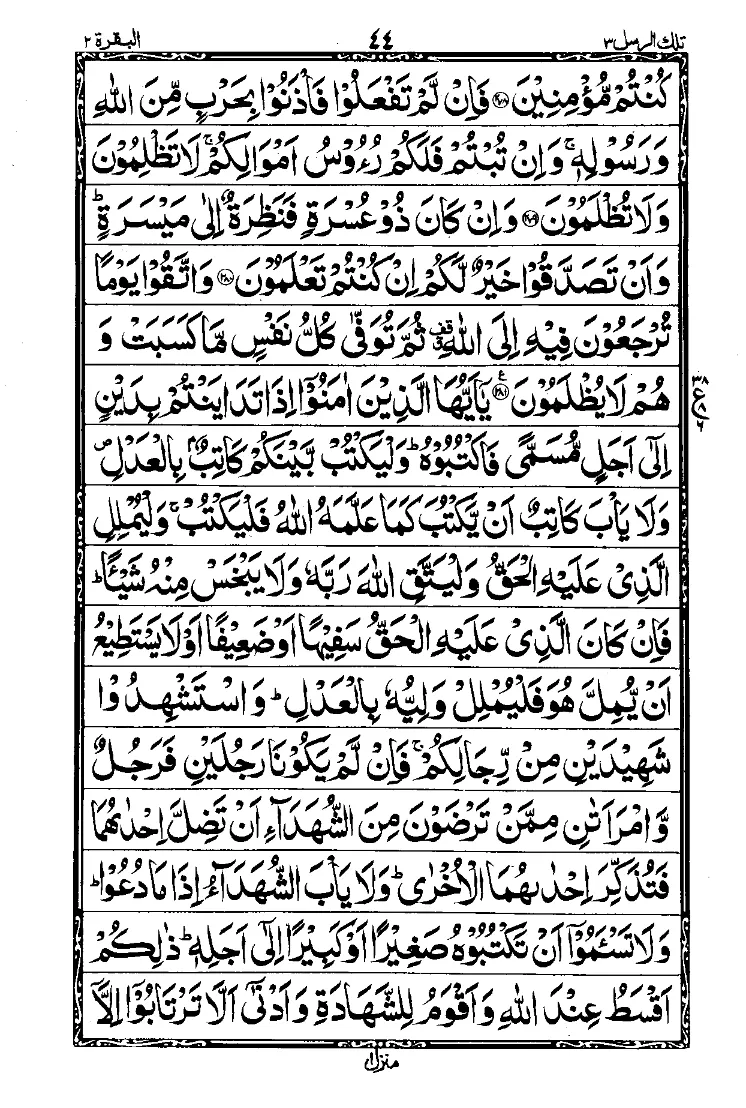 تلك الرسل ٣ ٤٤ البقرة ٢
كُنْتُمْ مُّؤْمِنِيْنَ ﴿٢٧٨﴾ فَاِنْ لَّمْ تَفْعَلُوْا فَاْذَنُوْا بِحَرْبٍ مِّنَ اللّٰهِ
وَرَسُوْلِهٖ ۚ وَاِنْ تُبْتُمْ فَلَكُمْ رُءُوْسُ اَمْوَالِكُمْ ۚ لَا تَظْلِمُوْنَ
وَلَا تُظْلَمُوْنَ ﴿٢٧٩﴾ وَاِنْ كَانَ ذُوْ عُسْرَةٍ فَنَظِرَةٌ اِلٰى مَيْسَرَةٍ ؕ
وَاَنْ تَصَدَّقُوْا خَيْرٌ لَّكُمْ اِنْ كُنْتُمْ تَعْلَمُوْنَ ﴿٢٨٠﴾ وَاتَّقُوْا يَوْمًا
تُرْجَعُوْنَ فِيْهِ اِلَى اللّٰهِ ۣ ثُمَّ تُوَفّٰى كُلُّ نَفْسٍ مَّا كَسَبَتْ وَ
هُمْ لَا يُظْلَمُوْنَ ﴿٢٨١﴾ ع يٰۤاَيُّهَا الَّذِيْنَ اٰمَنُوْۤا اِذَا تَدَايَنْتُمْ بِدَيْنٍ
اِلٰۤى اَجَلٍ مُّسَمًّى فَاكْتُبُوْهُ ؕ وَلْيَكْتُبْ بَّيْنَكُمْ كَاتِبٌۢ بِالْعَدْلِ ۪
وَلَا يَاْبَ كَاتِبٌ اَنْ يَّكْتُبَ كَمَا عَلَّمَهُ اللّٰهُ فَلْيَكْتُبْ ۚ وَلْيُمْلِلِ
الَّذِيْ عَلَيْهِ الْحَقُّ وَلْيَتَّقِ اللّٰهَ رَبَّهٗ وَلَا يَبْخَسْ مِنْهُ شَيْـًٔا ؕ
فَاِنْ كَانَ الَّذِيْ عَلَيْهِ الْحَقُّ سَفِيْهًا اَوْ ضَعِيْفًا اَوْ لَا يَسْتَطِيْعُ
اَنْ يُّمِلَّ هُوَ فَلْيُمْلِلْ وَلِيُّهٗ بِالْعَدْلِ ؕ وَاسْتَشْهِدُوْا
شَهِيْدَيْنِ مِنْ رِّجَالِكُمْ ۚ فَاِنْ لَّمْ يَكُوْنَا رَجُلَيْنِ فَرَجُلٌ
وَّامْرَاَتٰنِ مِمَّنْ تَرْضَوْنَ مِنَ الشُّهَدَآءِ اَنْ تَضِلَّ اِحْدٰىهُمَا
فَتُذَكِّرَ اِحْدٰىهُمَا الْاُخْرٰى ؕ وَلَا يَاْبَ الشُّهَدَآءُ اِذَا مَا دُعُوْا ؕ
وَلَا تَسْـَٔمُوْۤا اَنْ تَكْتُبُوْهُ صَغِيْرًا اَوْ كَبِيْرًا اِلٰۤى اَجَلِهٖ ؕ ذٰلِكُمْ
اَقْسَطُ عِنْدَ اللّٰهِ وَاَقْوَمُ لِلشَّهَادَةِ وَاَدْنٰۤى اَلَّا تَرْتَابُوْۤا اِلَّاۤ
منزل ١